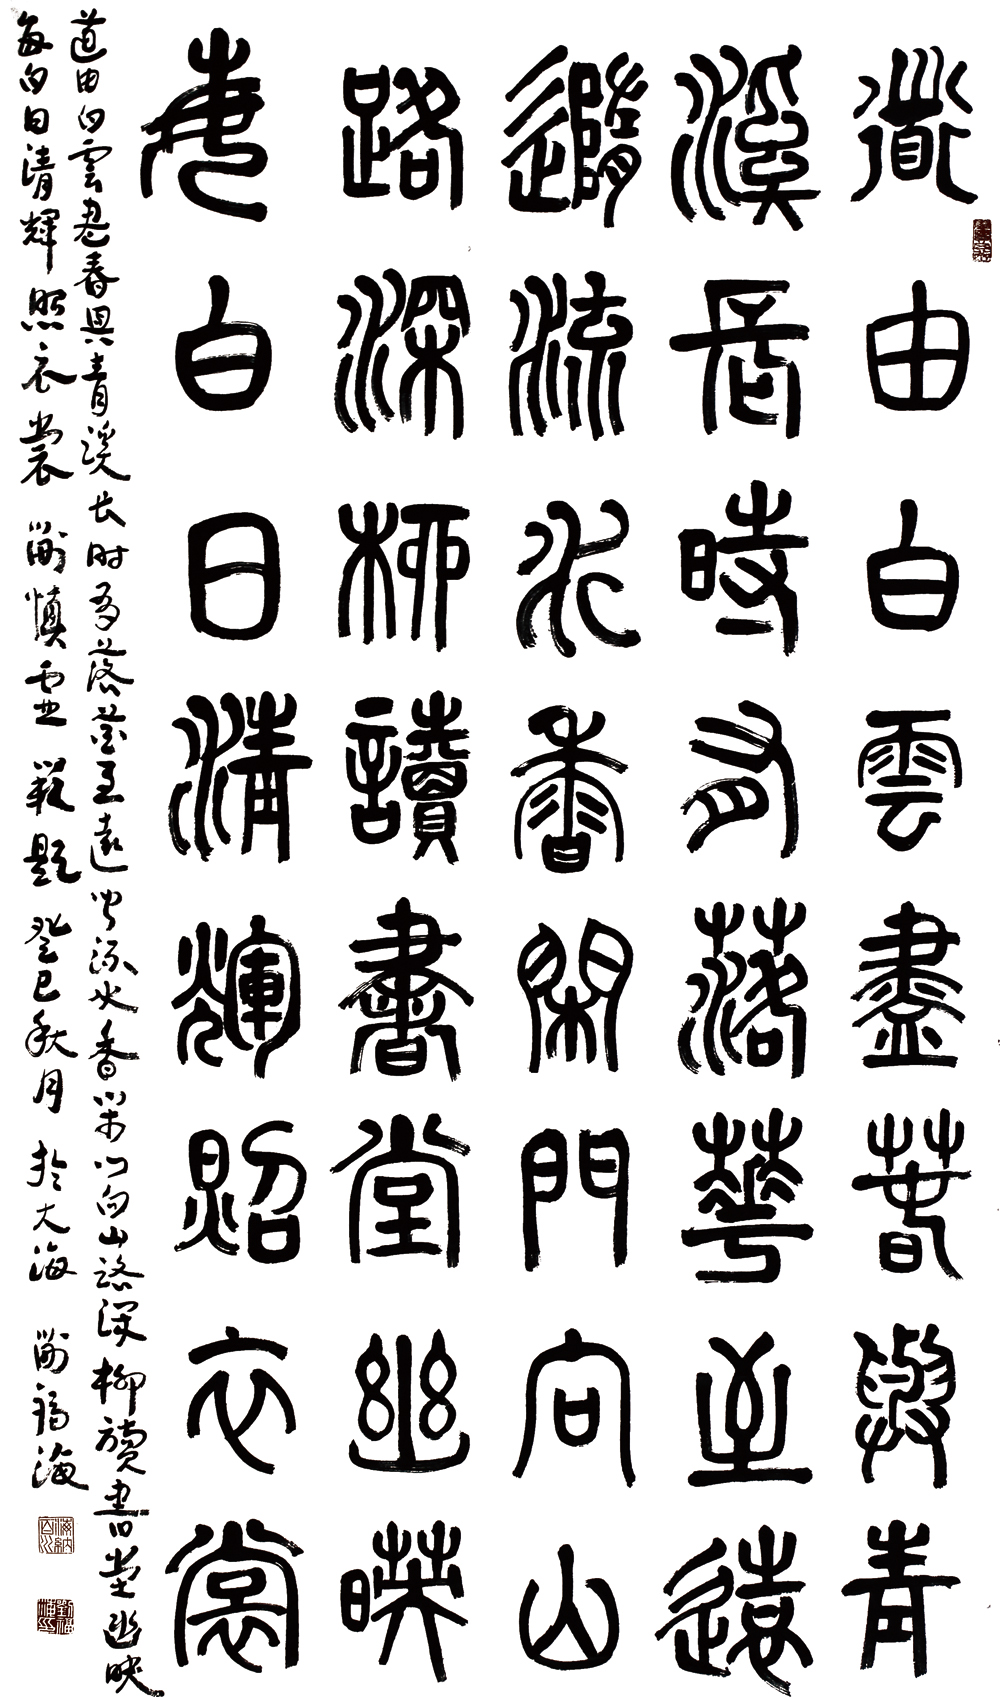 道由白雲盡春與青
溪長時有落華至遠
隨流水香閑門向山
路深柳讀書堂幽映
每白日清輝照衣裳
道由白雲盡春與青溪長时有落花至遠隨流水香閑门向山路深柳讀書堂幽映
每白日清輝照衣裳 劉慎虛 闕題 癸巳秋月於大海 劉福海
海納百川